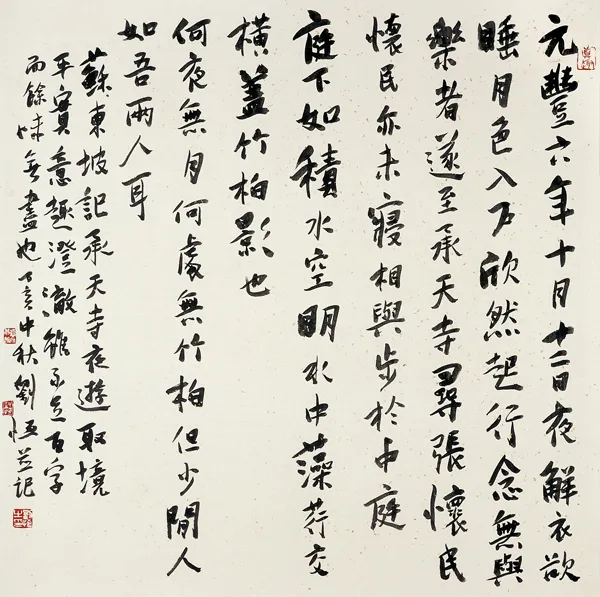 元豐六年十月十二日夜解衣欲
睡月色入戶欣然起行念無與
樂者遂至承天寺尋張懷民
懷民亦未寢相與步於中庭
庭下如積水空明水中藻荇交
橫蓋竹柏影也
何夜無月何處無竹柏但少閒人
如吾兩人耳
蘇東坡記承天寺夜遊取境
平實意趣澄澈雖不足百字
而餘味無盡也丁亥中秋劉恆並記